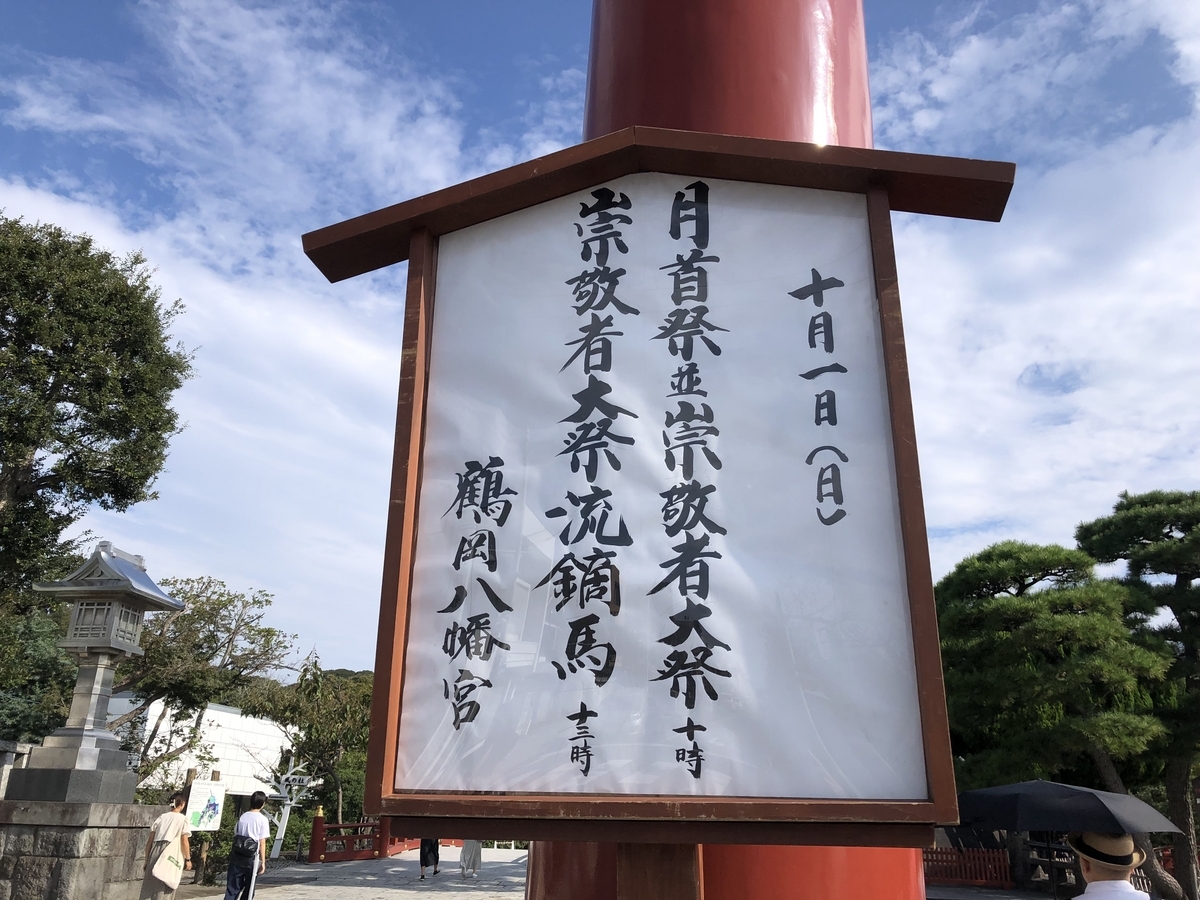 十月一日(日)
月首祭並崇敬者大祭 十時
崇敬者大祭流鏑馬 十三時
鶴岡八幡宮